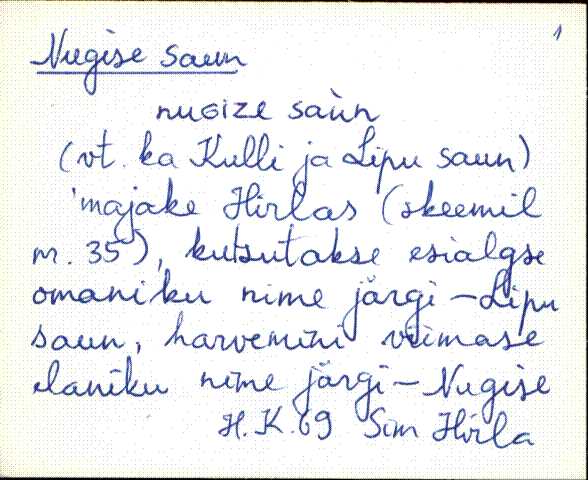 1
Nugise saun
nuGIZE saùn
(vt. ka Kulli ja Lipu saun)
'majake Hirlas (skeemil
nr. 35), kutsutakse esialgse
omaniku nime järgi – Lipu
saun, harvemini viimase
elaniku nime järgi – Nugise
H.K. 69 Sim Hirla